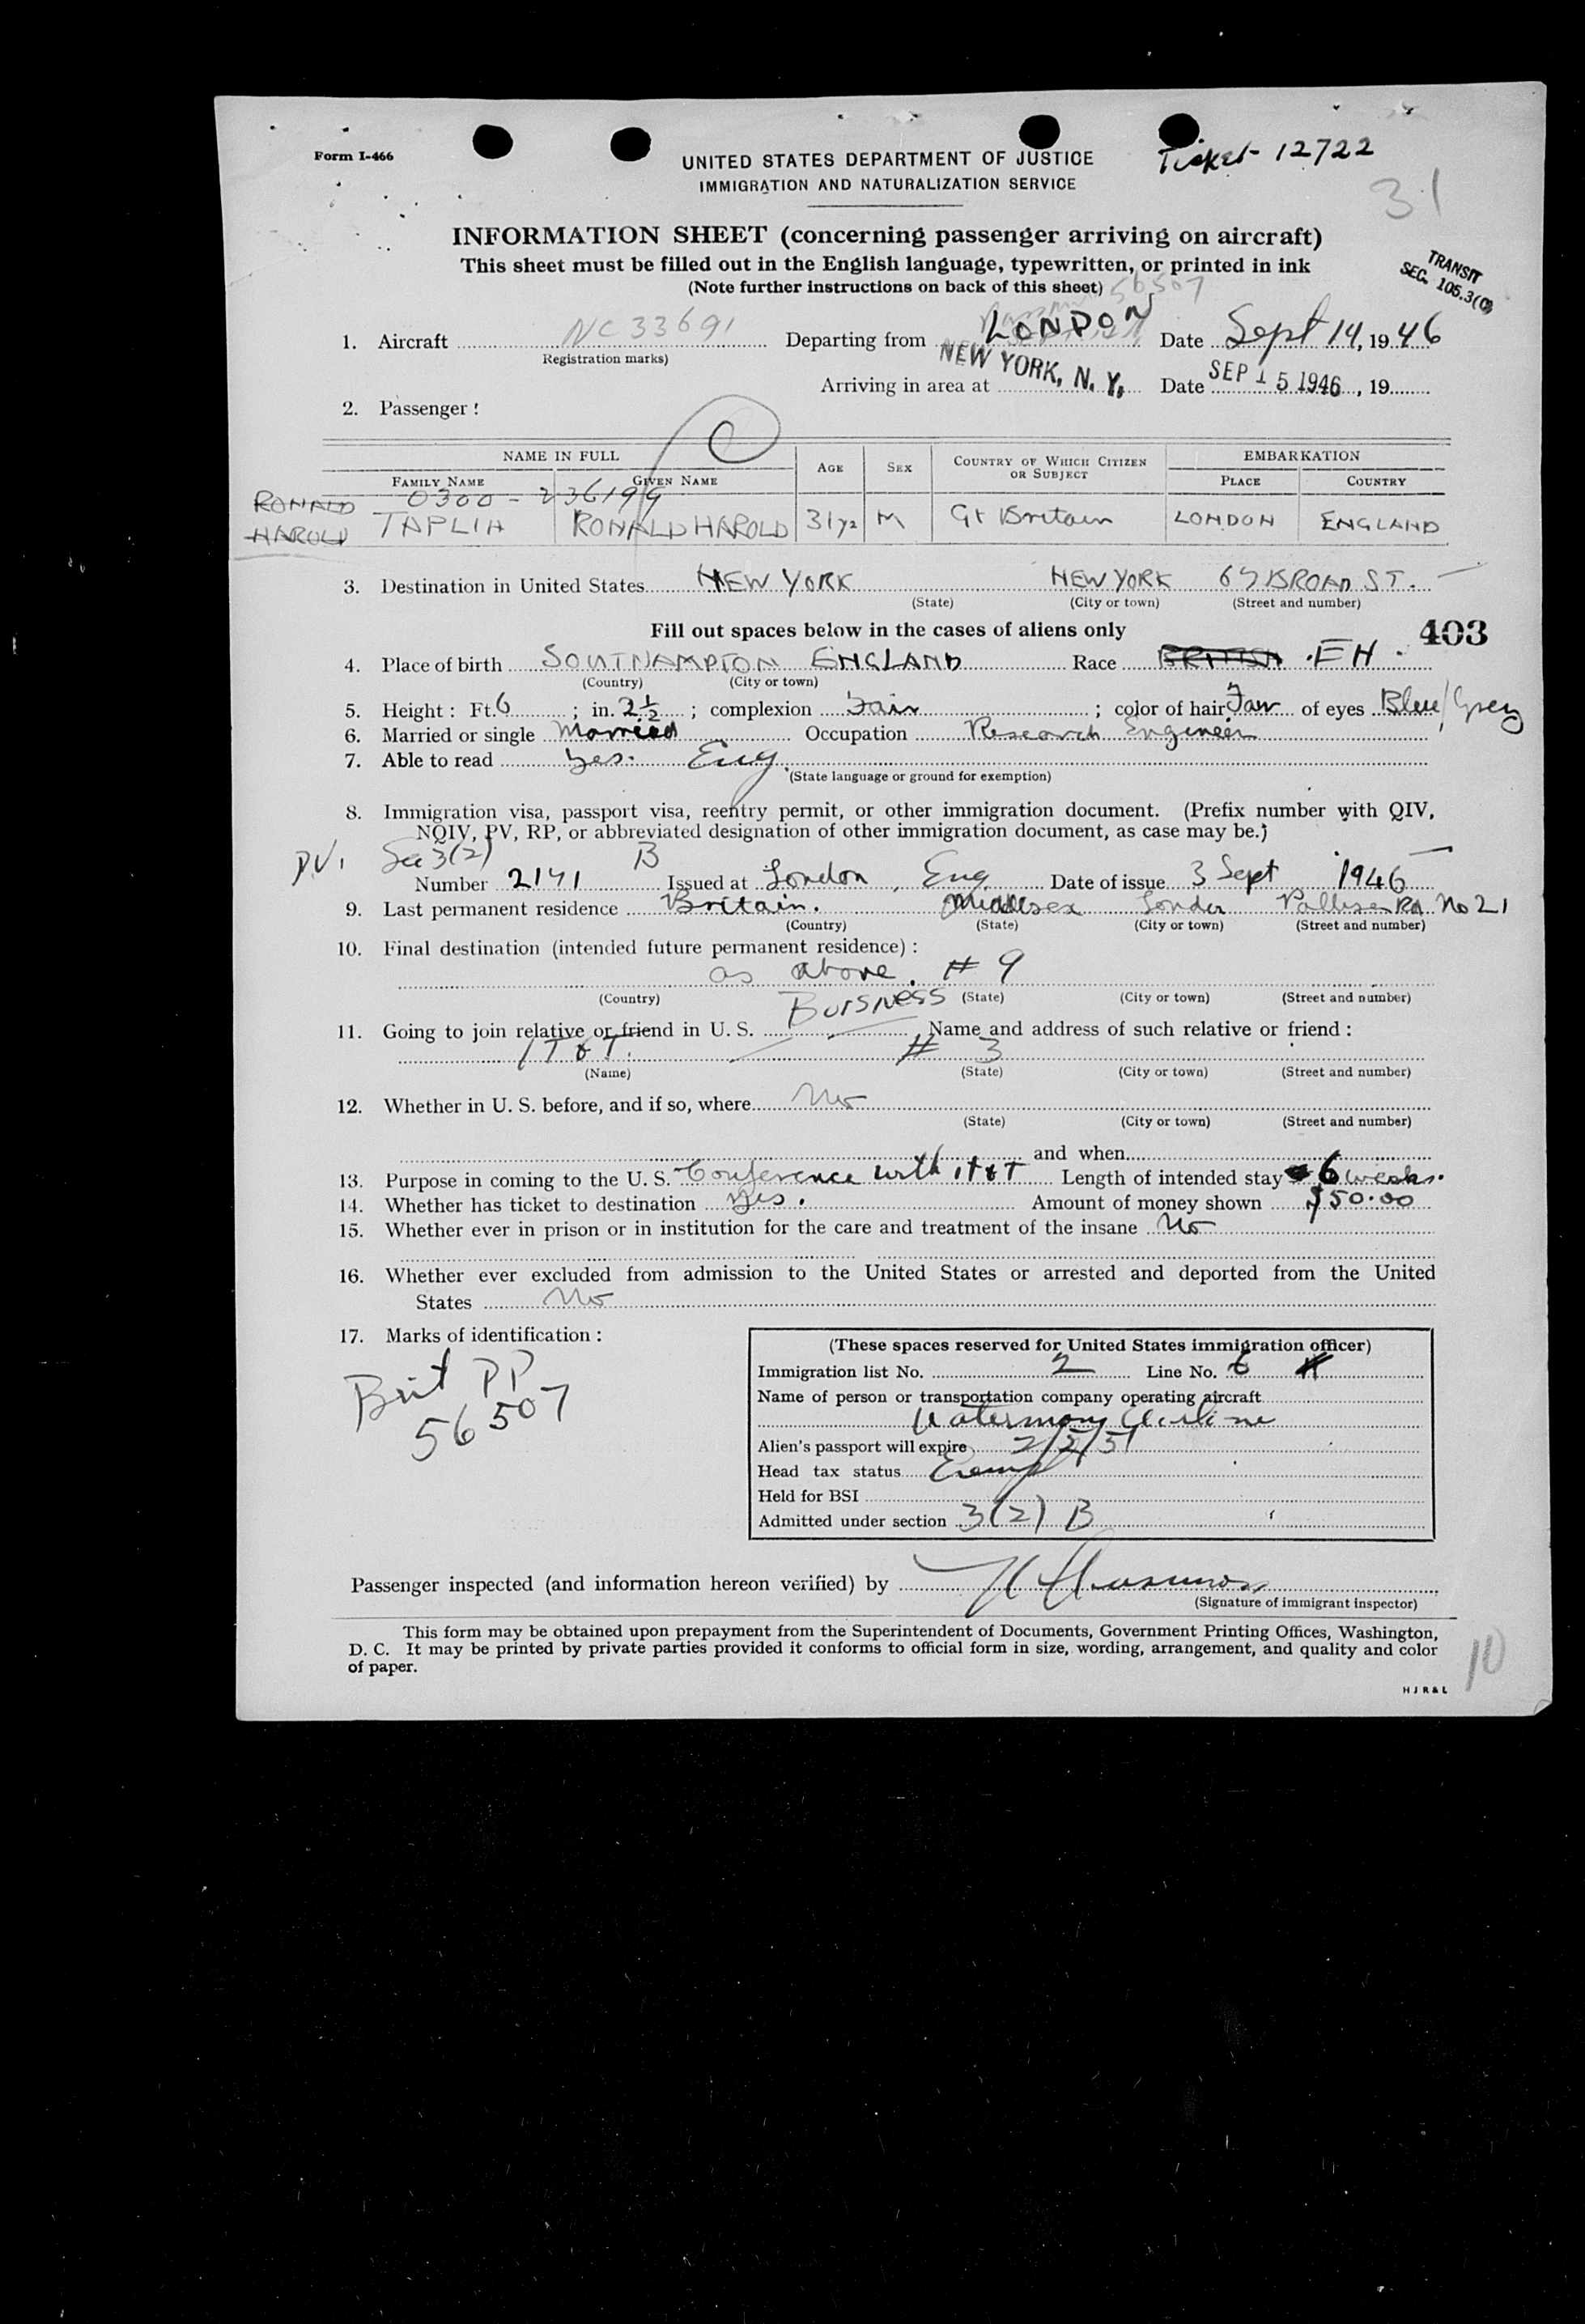 Form I-466
UNITED STATES DEPARTMENT OF JUSTICE
Ticket- 12722
IMMIGRATION AND NATURALIZATION SERVICE
31
INFORMATION SHEET (concerning passenger arriving on aircraft)
This sheet must be filled out in the English language, typewritten, or printed in ink
TRANSIT
SEC. 105.3(C)
(Note further instructions on back of this sheet) 56507
1. Aircraft NC 33691 Departing from LONDON Date Sept 14, 1946
(Registration marks)
Arriving in area at NEW YORK, N. Y. Date SEP 15 1946, 19
2. Passenger:
NAME IN FULL AGE SEX COUNTRY OF WHICH CITIZEN OR SUBJECT EMBARKATION
FAMILY NAME GIVEN NAME PLACE COUNTRY
RONALD 0300-236199
HAROLD TAPLIN RONALD HAROLD 31 M Gt Britain LONDON ENGLAND
3. Destination in United States NEW YORK NEW YORK 67 BROAD ST.
(State) (City or town) (Street and number)
Fill out spaces below in the cases of aliens only 403
4. Place of birth SOUTHAMPTON ENGLAND Race BRITISH
(Country) (City or town)
5. Height: Ft. 6; in. 2½; complexion Fair; color of hair Fair of eyes Blue/Grey
6. Married or single Married Occupation Research Engineer
7. Able to read Yes. Eng.
(State language or ground for exemption)
8. Immigration visa, passport visa, reentry permit, or other immigration document. (Prefix number with QIV,
NQIV, PV, RP, or abbreviated designation of other immigration document, as case may be.)
PV. Sec 3(2) B
Number 2141 Issued at London, Eng Date of issue 3 Sept 1946
9. Last permanent residence Britain. Middlesex London Palliser Rd No 21
(Country) (State) (City or town) (Street and number)
10. Final destination (intended future permanent residence):
as above. # 9
(Country) (State) (City or town) (Street and number)
BUISNESS
11. Going to join relative or friend in U. S. Name and address of such relative or friend:
IT&T. # 3
(Name) (State) (City or town) (Street and number)
12. Whether in U. S. before, and if so, where No
(State) (City or town) (Street and number)
and when
13. Purpose in coming to the U. S. Conference with IT&T Length of intended stay 6 weeks.
14. Whether has ticket to destination yes. Amount of money shown $50.00
15. Whether ever in prison or in institution for the care and treatment of the insane No
16. Whether ever excluded from admission to the United States or arrested and deported from the United
States No
17. Marks of identification:
Brit PP
56507
(These spaces reserved for United States immigration officer)
Immigration list No. 2 Line No. 6
Name of person or transportation company operating aircraft
Waterman Airline
Alien's passport will expire 2/5/51
Head tax status Exempt
Held for BSI
Admitted under section 3(2) B
Passenger inspected (and information hereon verified) by
(Signature of immigrant inspector)
This form may be obtained upon prepayment from the Superintendent of Documents, Government Printing Offices, Washington,
D. C. It may be printed by private parties provided it conforms to official form in size, wording, arrangement, and quality and color
of paper.
10
H J R & L